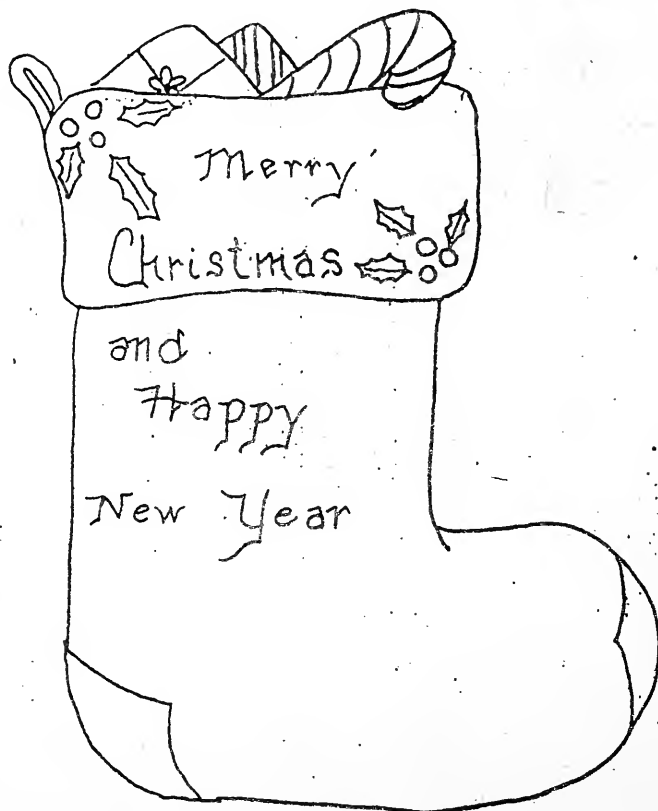 Merry
Christmas
and
Happy
New Year